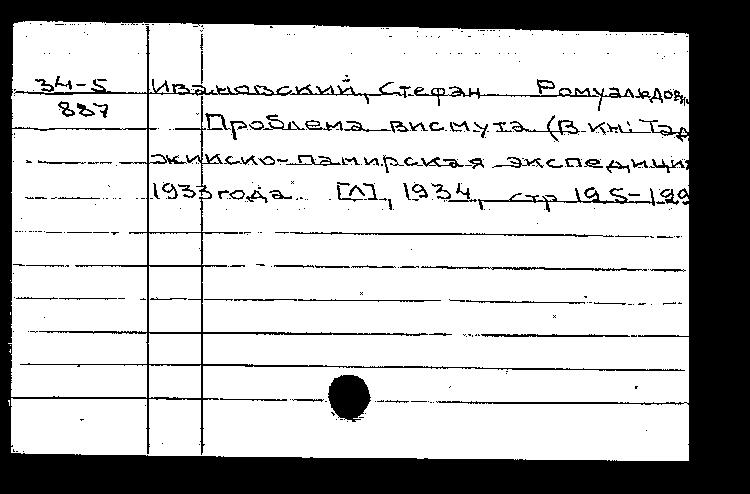 34-5 Ивановский, Стефан Ромуальдови
887 Проблема висмута (В кн: Тад
жикско-памирская экспедиция
1933 года. [Л], 1934, стр 195-199